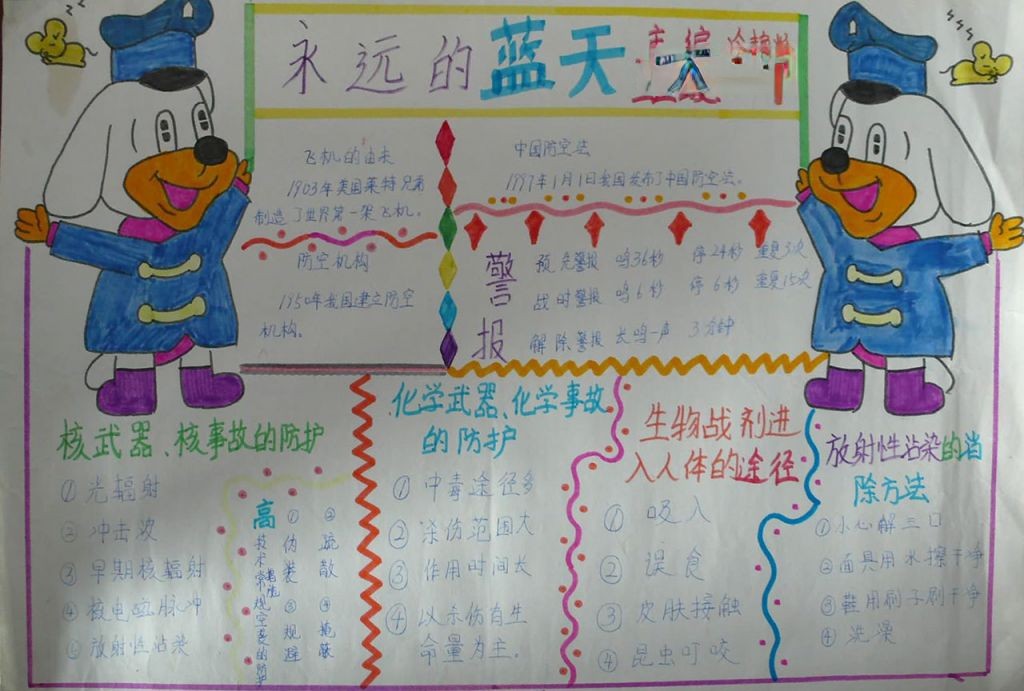 永远的蓝天
主编
飞机的由来
1903年美国莱特兄弟
制造了世界第一架飞机。
防空机构
1950年我国建立防空
机构。
中国防空法
1997年1月1日我国发布了中国防空法。
警报
预先警报 鸣36秒 停24秒 重复3次
战时警报 鸣6秒 停6秒 重复15次
解除警报 长鸣一声 3分钟
核武器、核事故的防护
①光辐射
②冲击波
③早期核辐射
④核电磁脉冲
⑤放射性沾染
高技术常规空袭的防护
①伪装
②疏散
③规避
④掩蔽
化学武器、化学事故
的防护
①中毒途径多
②杀伤范围大
③作用时间长
④以杀伤有生
命量为主。
生物战剂进
入人体的途径
①吸入
②误食
③皮肤接触
④昆虫叮咬
放射性沾染的消
除方法
①小心解三口
②面具用水擦干净
③鞋用刷子刷干净
④洗澡